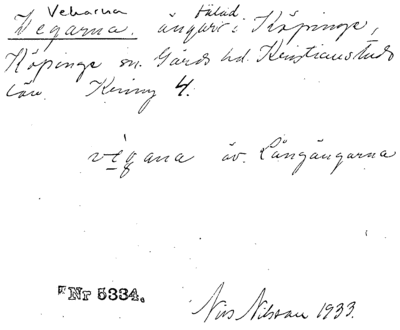 Veharna fälad
Vegarna. ängar i Köpinge,
Köpinge sn. Gärds hd. Kristianstads
län. Kinny 4.
vegana äv. Långängarna
Nr 5334.
Nils Nilsson 1933.